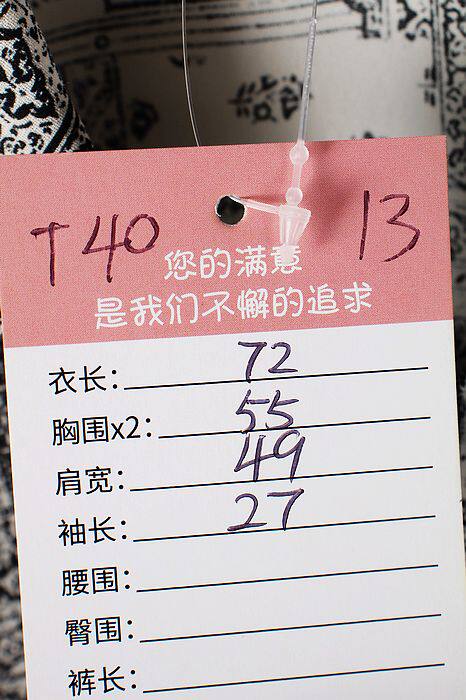 T40 13
您的满意
是我们不懈的追求
衣长: 72
胸围x2: 55
肩宽: 49
袖长: 27
腰围:
臀围:
裤长: